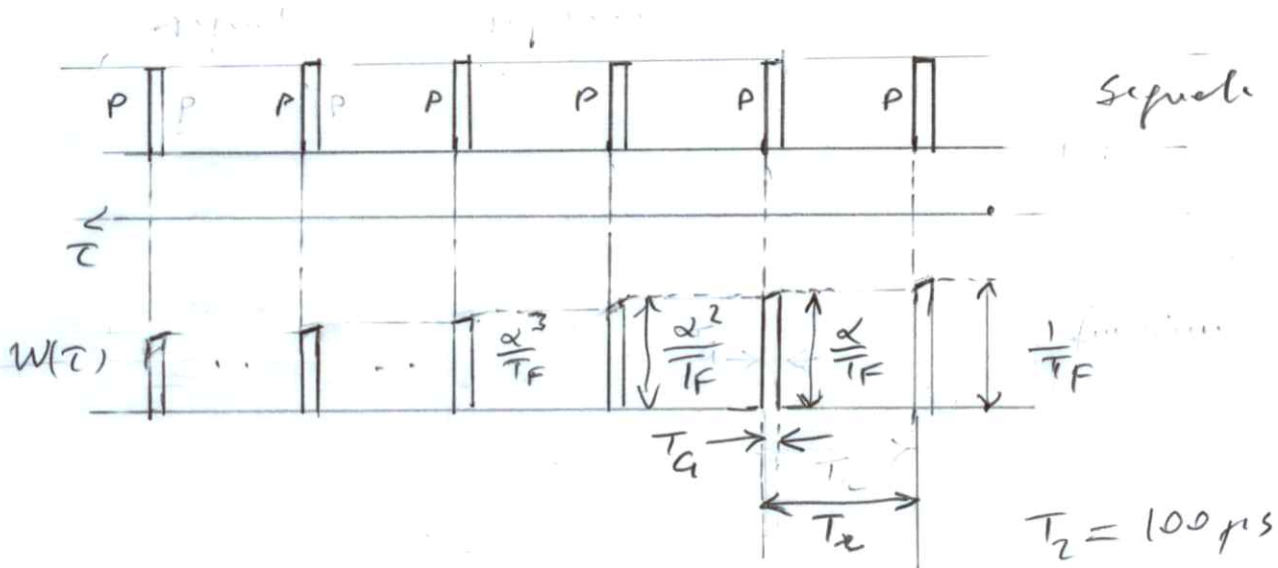 P P P P P P Segnale
τ
W(τ) .. .. α³/T_F α²/T_F α/T_F 1/T_F
T_G
T_r
T_2 = 100 μs